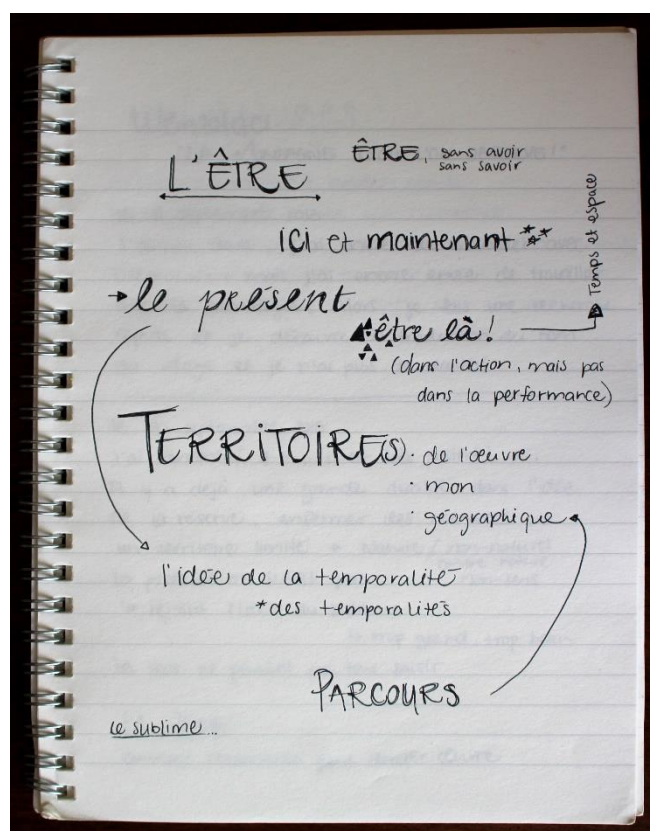 L'ÊTRE
ÊTRE, sans avoir
sans savoir
ici et maintenant ***
le présent
être là!
Temps et espace
(dans l'action, mais pas
dans la performance)
TERRITOIRE(S) · de l'œuvre
· mon
· géographique
l'idée de la temporalité
*des temporalités
PARCOURS
le sublime...